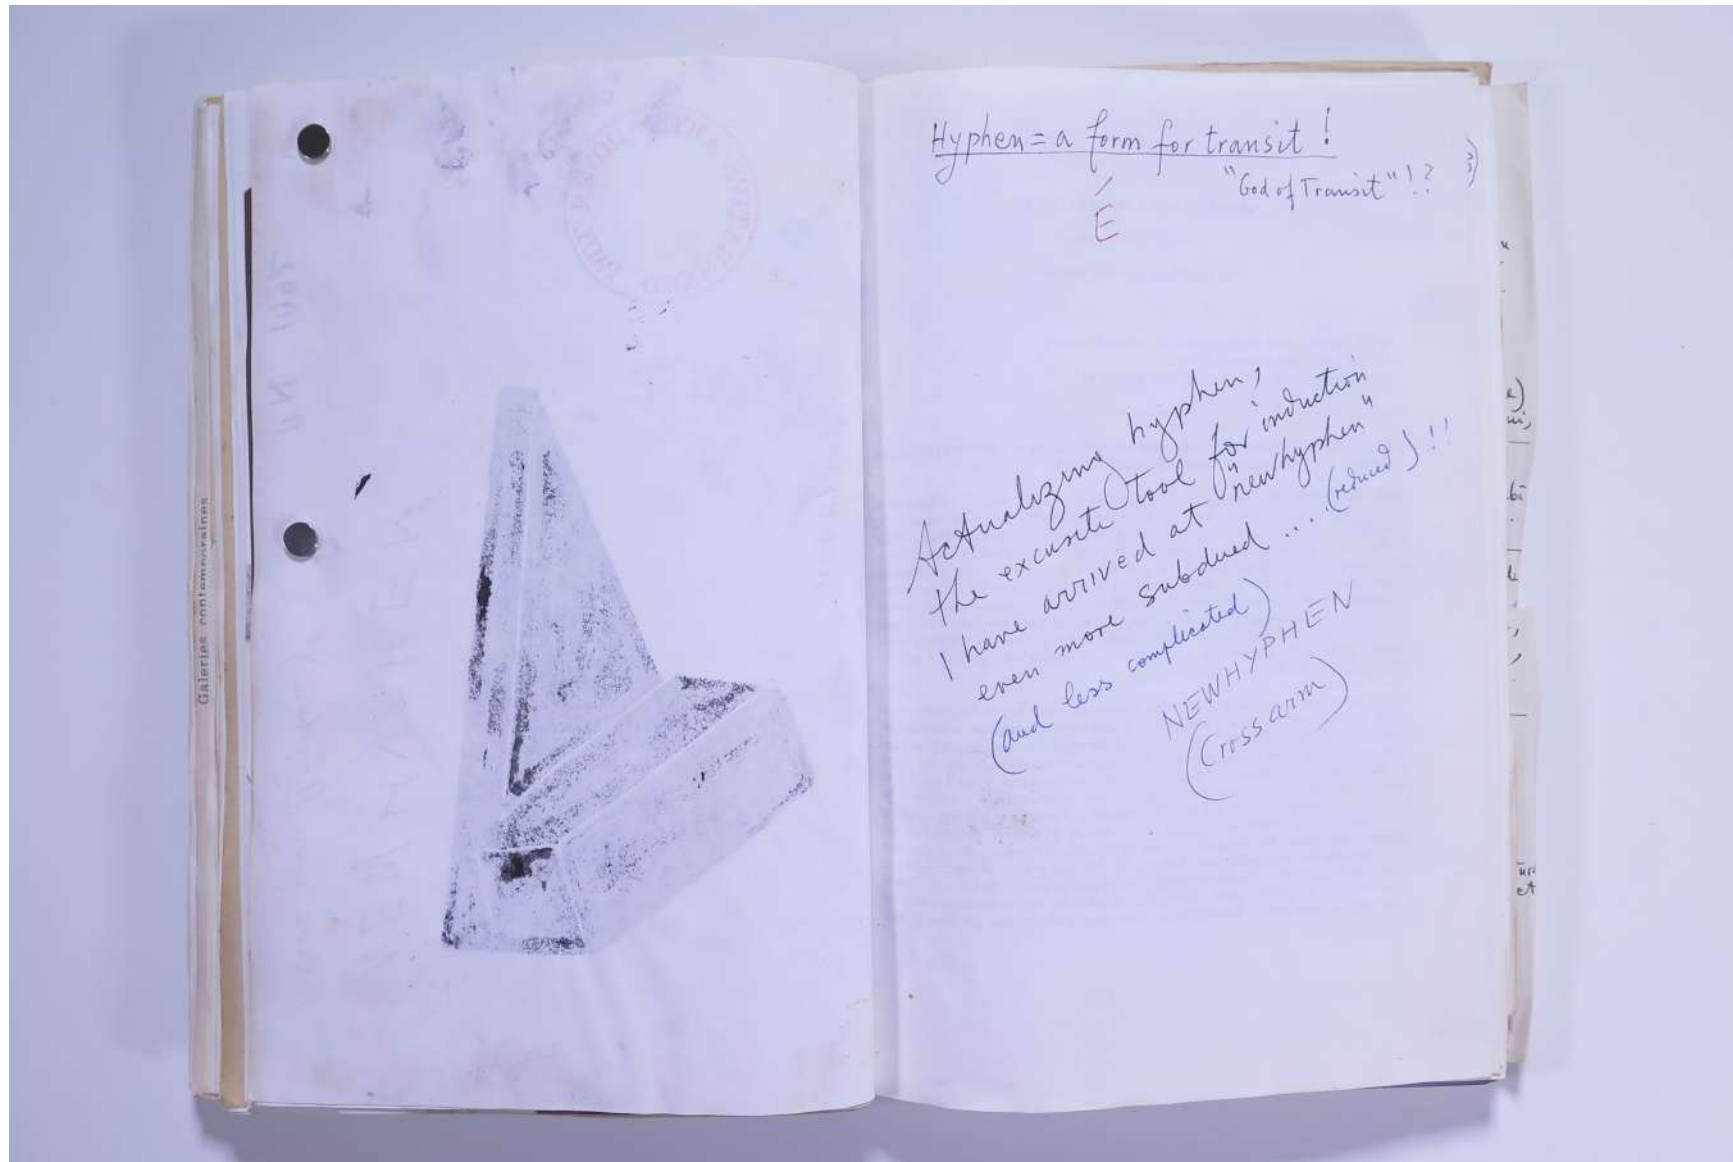 Galeries contemporaines
Hyphen = a form for transit !
"God of Transit" !?
É
Actualizing hyphen,
the excusite tool for induction
I have arrived at "newhyphen"
even more subdued .... (reduced) !!
(and less complicated)
NEWHYPHEN
(Cross arm)